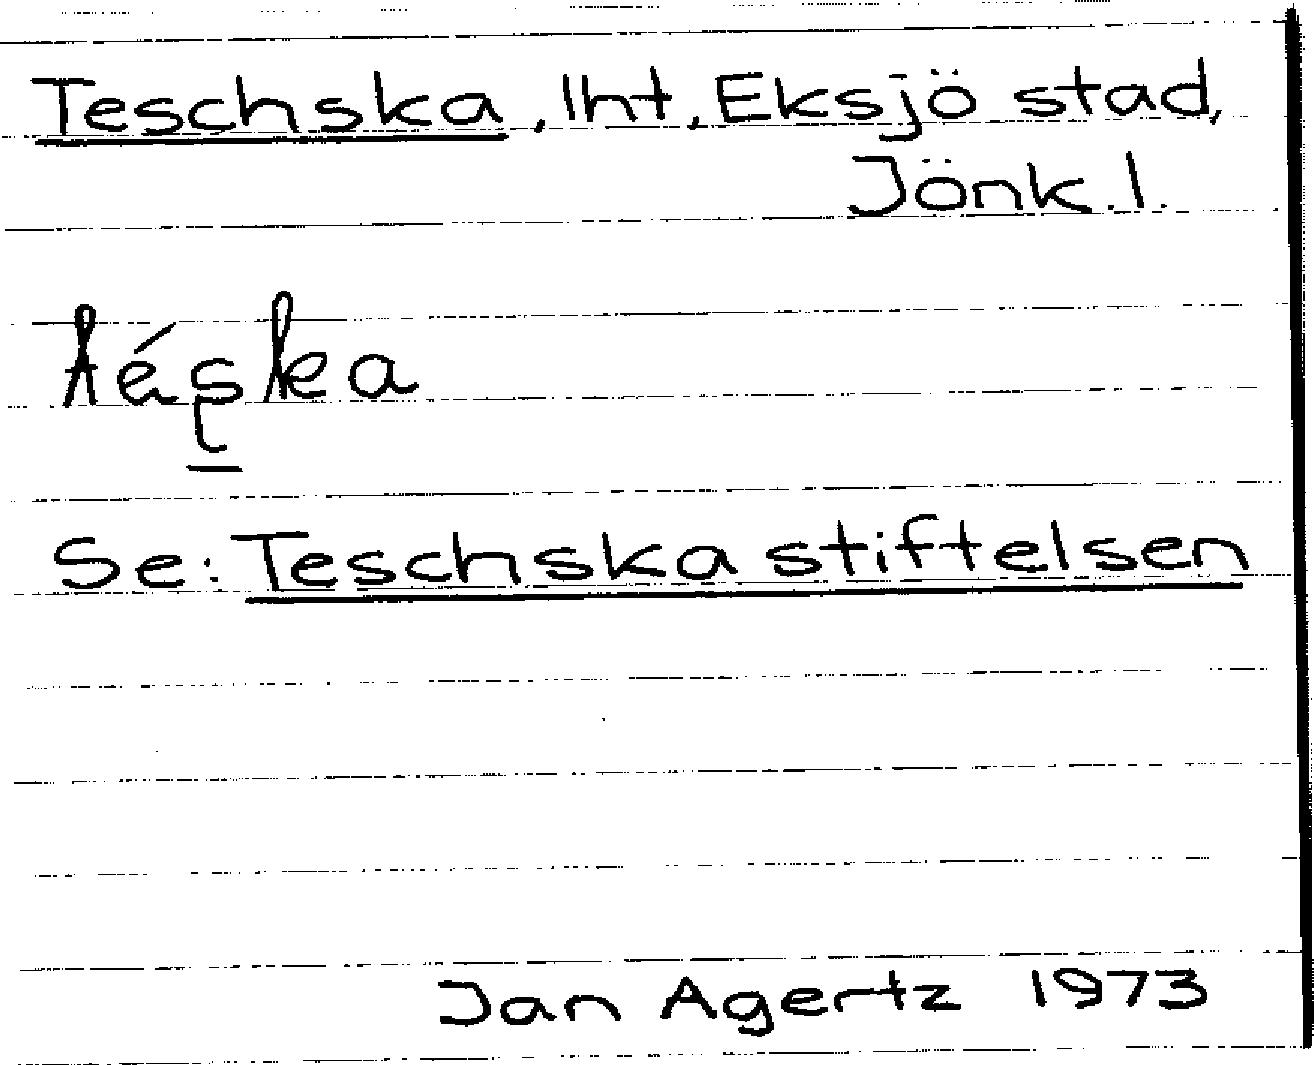 Teschska, lht, Eksjö stad,
Jönk. l.
Se: Teschska stiftelsen
Jan Agertz 1973